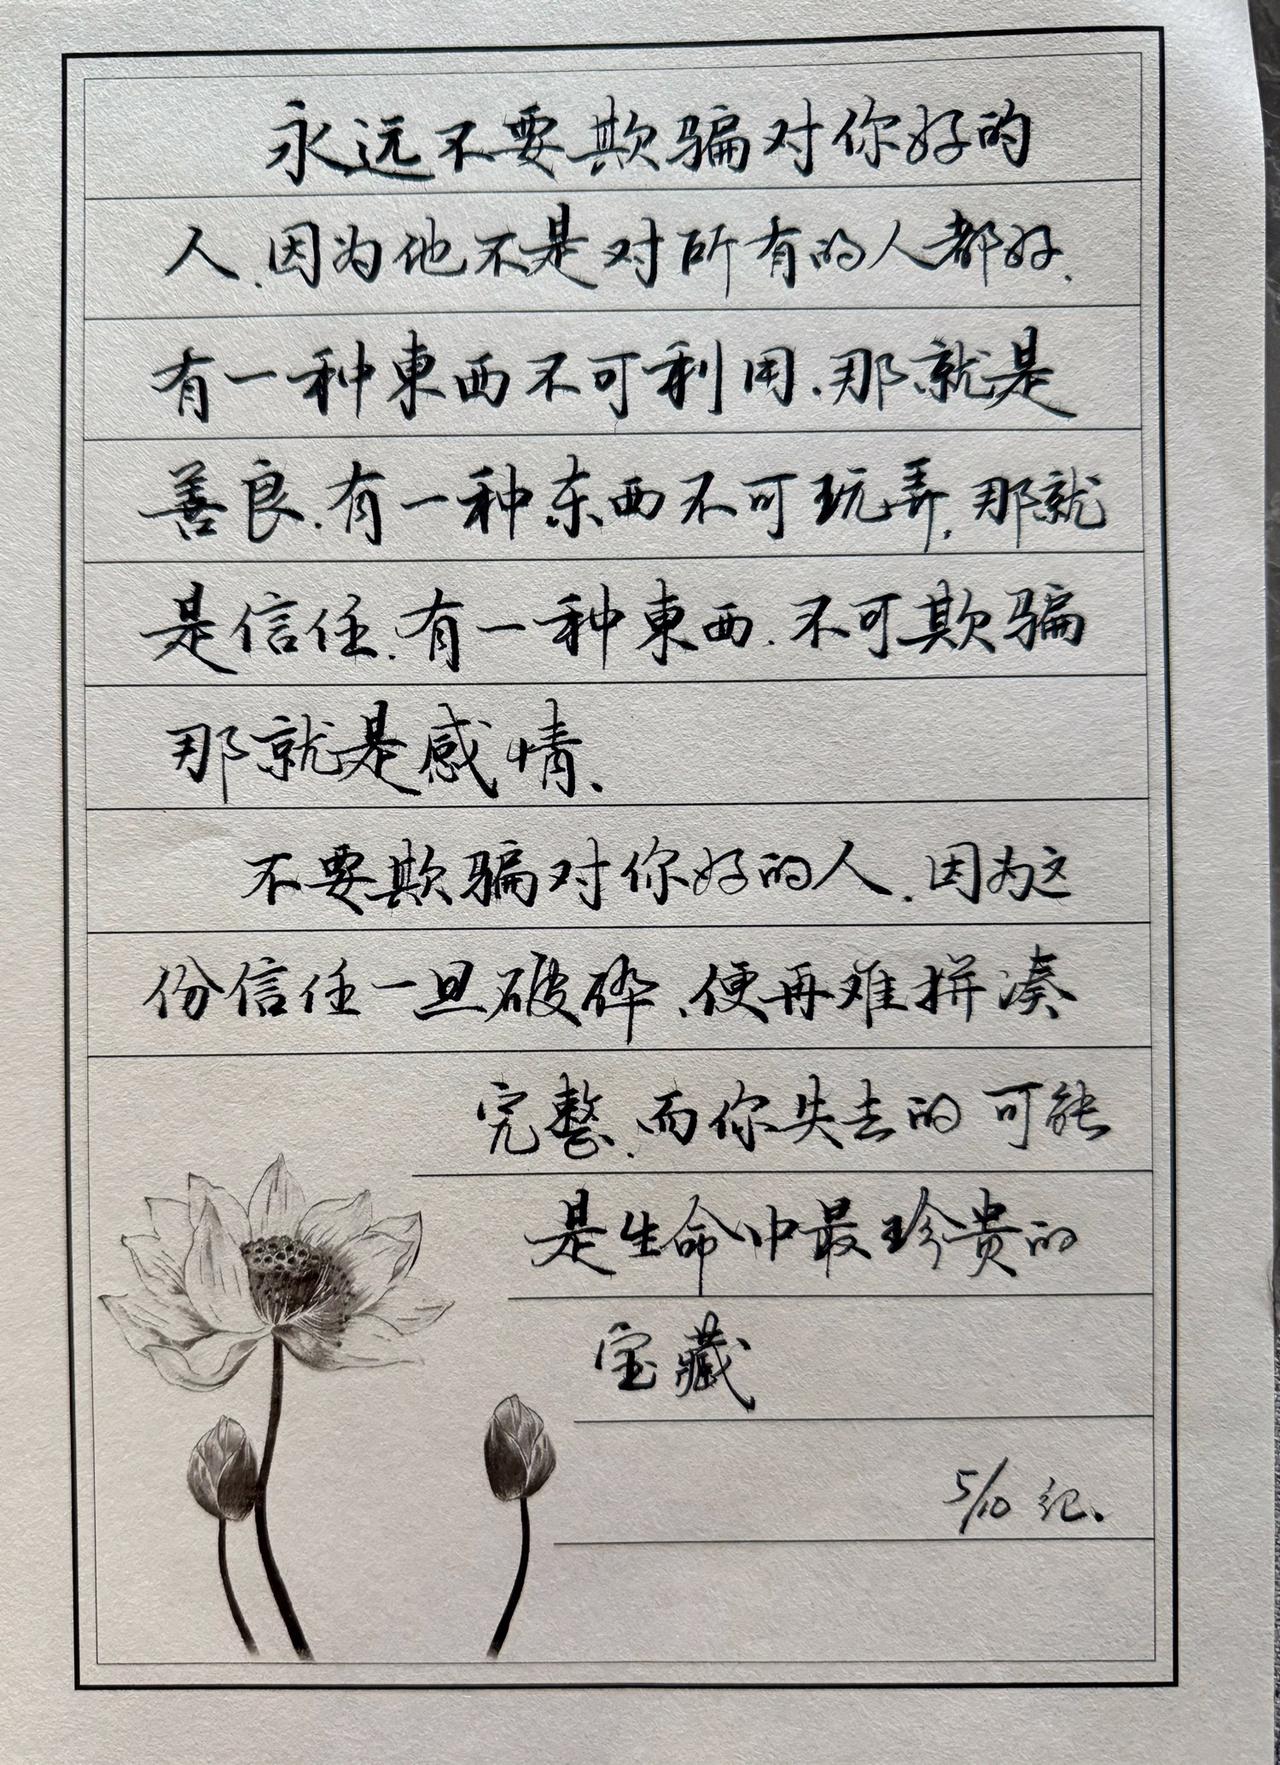 永远不要欺骗对你好的
人.因为他不是对所有的人都好.
有一种東西不可利用.那就是
善良.有一种东西不可玩弄.那就
是信任.有一种東西.不可欺骗
那就是感情.
不要欺骗对你好的人.因为这
份信任一旦破碎.便再难拼凑
完整.而你失去的可能
是生命中最珍贵的
宝藏
5/10 纪.